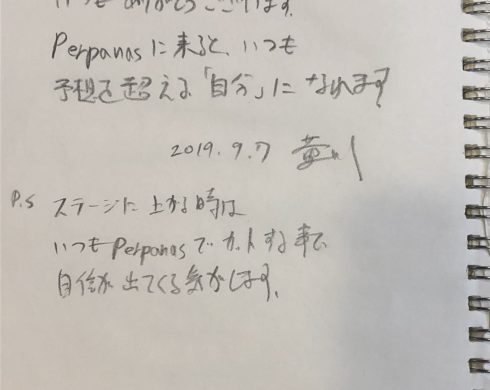 いつもありがとうございます。
Perpanasに来ると、いつも
予想を超える「自分」になれます
2019.9.7
P.S ステージに上がる時は
いつもPerpanasでカットする事で
自信が出てくる気がします。